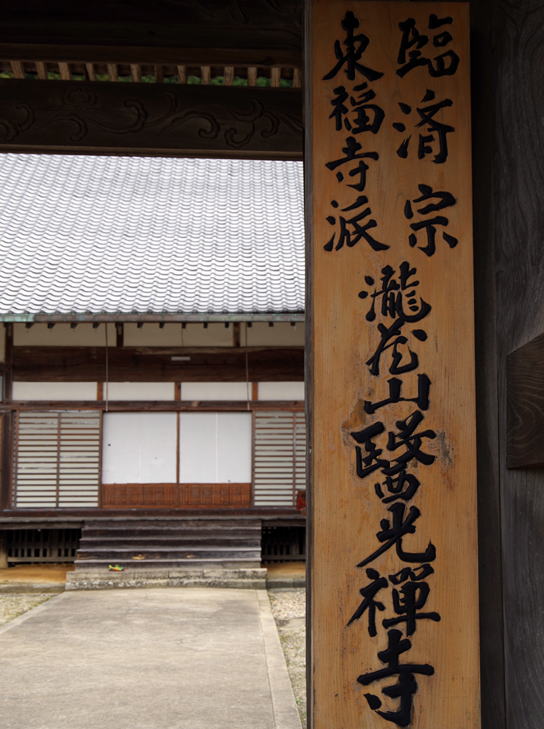 臨済宗
東福寺派
瀧蔵山醫光禪寺